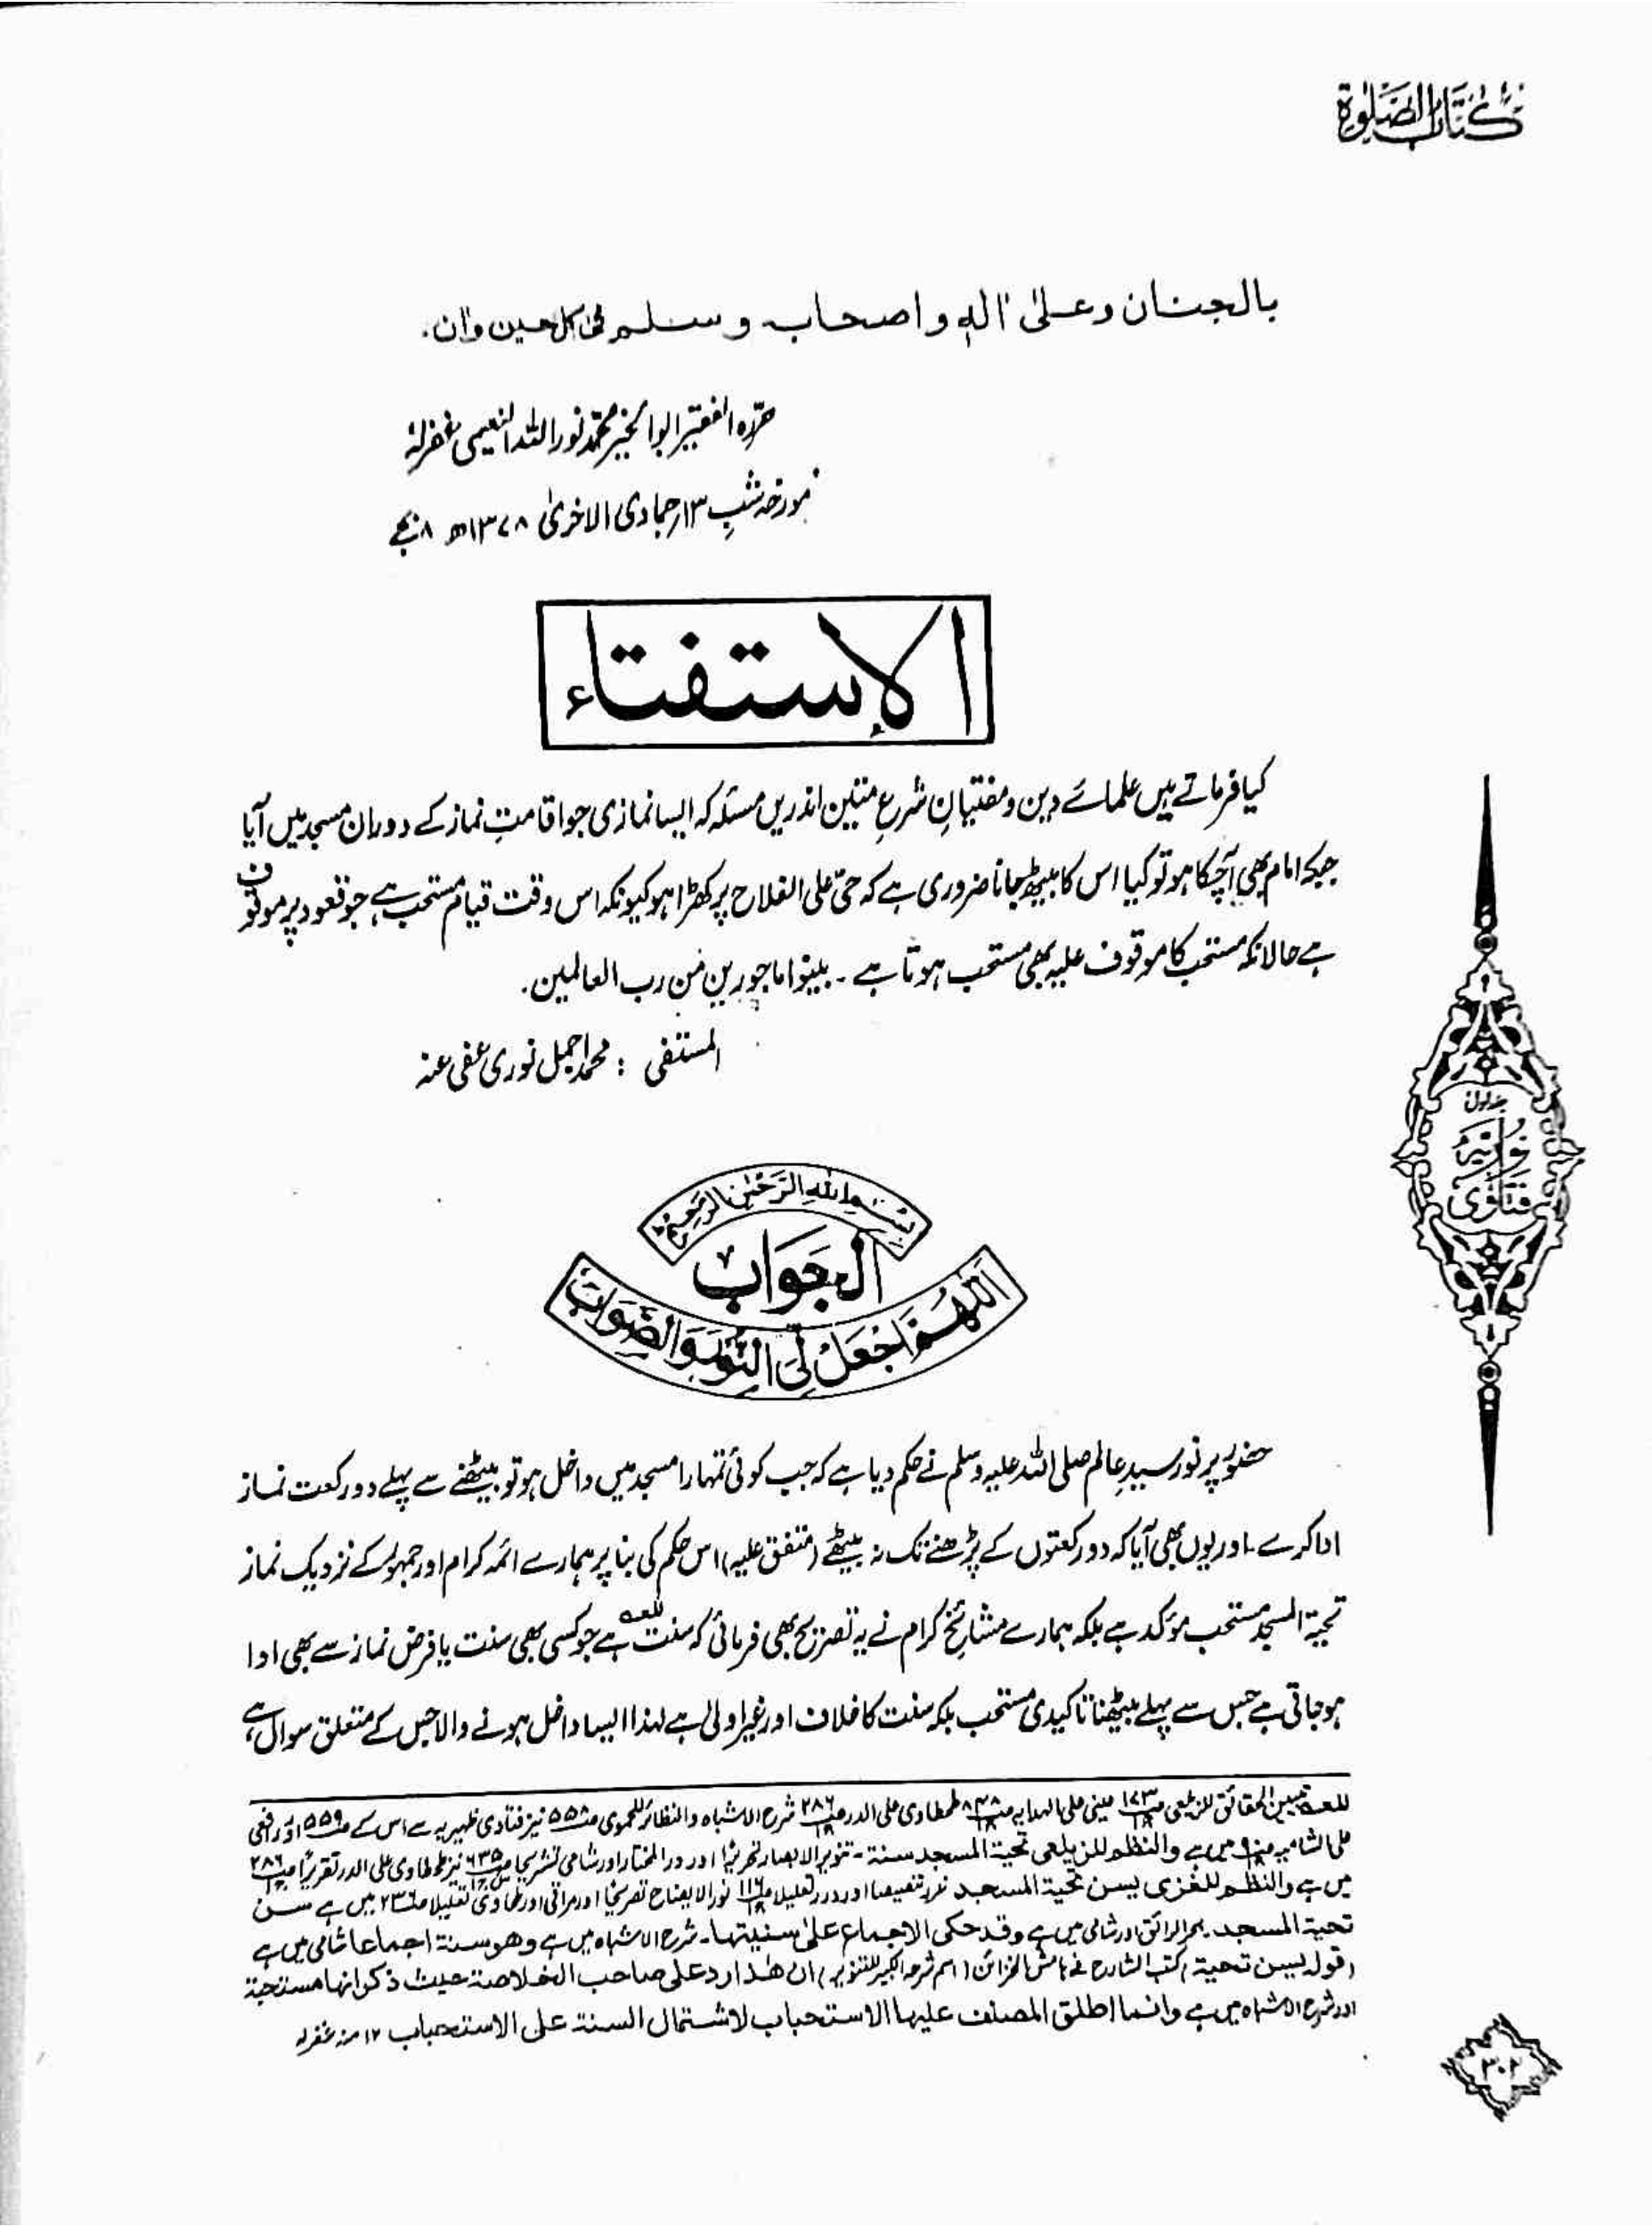 كتاب الصلوة
بالجنان وعلىٰ اٰلهٖ واصحابه وسلم فی كل حين واٰن.
حرّرہ الفقیر ابوالخیر محمد نور اللہ النعیمی غفرلہٗ
مورخہ شبِ ۱۳؍ جمادی الاخریٰ ۱۳۷۸ھ ۸ بجے
الإستفتاء
کیا فرماتے ہیں علمائے دین و مفتیانِ شرعِ متین اندریں مسئلہ کہ ایسا نمازی جو اقامتِ نماز کے دوران مسجد میں آیا
جبکہ امام بھی آچکا ہو تو کیا اس کا بیٹھ جانا ضروری ہے کہ حیّ علی الفلاح پر کھڑا ہو کیونکہ اس وقت قیام مستحب ہے جو قعود پر موقوف
ہے حالانکہ مستحب کا موقوف علیہ بھی مستحب ہوتا ہے ۔ بینوا ماجورین من رب العالمین.
المستفتی : محمد اجمل نوری عفی عنہ
بسم الله الرحمٰن الرحيم
الجواب
اللهم اجعل لی النور والصواب
جلد اول
فتاویٰ نوریہ
حضور پر نور سیدِ عالم صلی اللہ علیہ وسلم نے حکم دیا ہے کہ جب کوئی تمہارا مسجد میں داخل ہو تو بیٹھنے سے پہلے دو رکعت نماز
ادا کرے ۔ اور یوں بھی آیا کہ دو رکعتوں کے پڑھنے تک نہ بیٹھے (متفق علیہ) اس حکم کی بنا پر ہمارے ائمہ کرام اور جمہور کے نزدیک نماز
تحیۃ المسجد مستحب مؤکد ہے بلکہ ہمارے مشائخ کرام نے یہ تصریح بھی فرمائی کہ سنت للعہ ہے جو کسی بھی سنت یا فرض نماز سے بھی ادا
ہو جاتی ہے جس سے پہلے بیٹھنا تاکیدی مستحب بلکہ سنت کا خلاف اور غیر اولیٰ ہے لہٰذا ایسا داخل ہونے والا جس کے متعلق سوال ہے،
للعہ تبیین الحقائق للزیلعی ص ۱۷۳ عینی علی الہدایہ ص طحطاوی علی الدر ص ۲۸۶ شرح الاشباہ والنظائر للحموی ص ۵۵۸ نیز فتاوی ظہیریہ سے اس کے ص ۵۵۹ اور رافعی
علی الشامیہ میں ہے والنظم للزيلعی تحية المسجد سنة ۔ تنویر الابصار تحریرًا اور در المختار اور شامی تشریحا ص ۶۳۵ نیز طحطاوی علی الدر تقریرًا ص ۲۸۶
میں ہے والنظم للغزی يسن تحية المسجد غرر تنصیصا اور درر تعلیلا ص ۱۱۶ نور الایضاح تصریحًا اور مراقی اور طحطاوی تعلیلا ص ۲۳۶ میں ہے سن
تحية المسجد ۔ بحر الرائق اور شامی میں ہے وقد حكی الاجماع علیٰ سنيتها ۔ شرح الاشباہ میں ہے وهو سنة اجماعا شامی میں ہے
(قوله يسن تحية) کتب الشارح فی ہامش الخزائن (اسم شرحہ الکبیر للتنویر) ان هٰذا رد علی صاحب الخلاصة حيث ذكر انها مستحبة
اور شرح الاشباہ میں ہے وانما اطلق المصنف عليها الاستحباب لاشتمال السنة علی الاستحباب ۱۲ منہ غفرلہ
۳۰۲